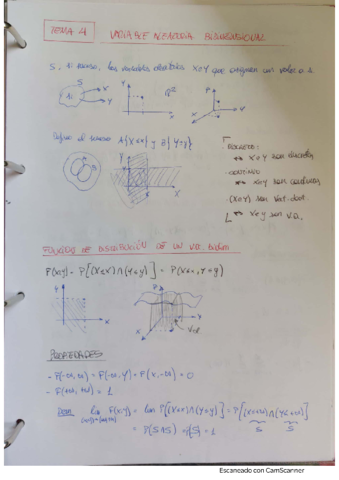 TEMA 4 VARIABLE ALEATORIA BIDIMENSIONAL
S, el suceso, las variables aleatorias X e Y que asignan un valor a
S
X
Y
ℝ²
A{X≤x} y B{Y≤y}
DISCRETO:
↔ X e Y son discretas
CONTINUO
↔ X e Y son continuas
(X e Y) son
↔ X e Y son V.A.
DE DISTRIBUCIÓN DE UN
F(x,y) = P[(X≤x)∩(Y≤y)] = P(X≤x, Y≤y)
PROPIEDADES
- F(-∞,-∞) = F(-∞,y) = F(x,-∞) = 0
- F(+∞,+∞) = 1
Dem lim F(x,y) = lim P[(X≤x)∩(Y≤y)] = P[(X≤+∞)∩(Y≤+∞)]
S S
= P(S∩S) = P(S) = 1
Escaneado con CamScanner